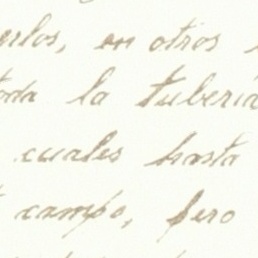 en otros
toda la tubería
cuales hasta
campo, pero